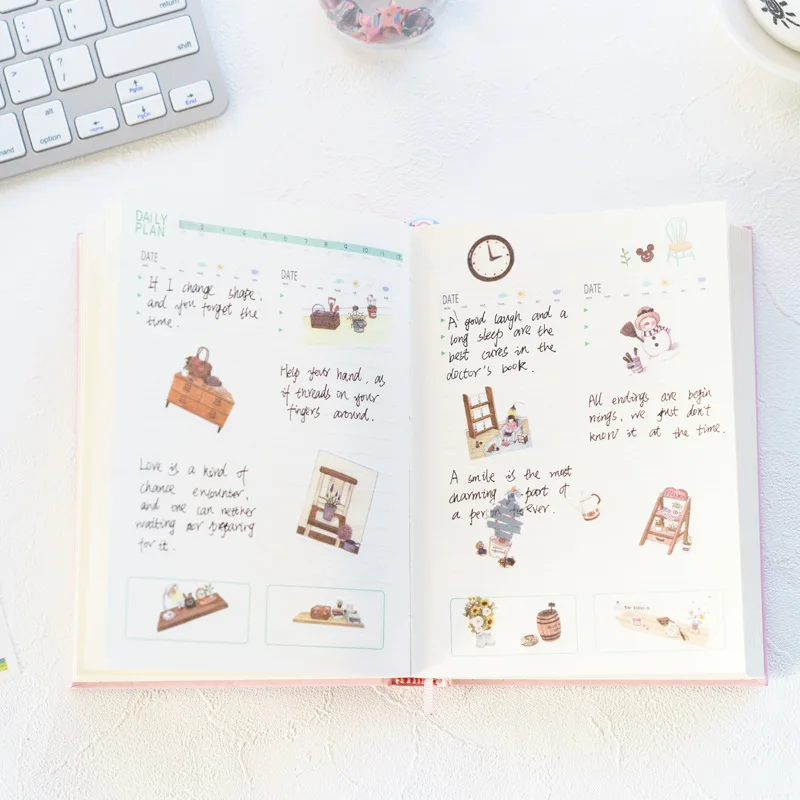 return
shift
alt
option
Home
End
DAILY
PLAN
DATE
If I change shape.
and you forget the
time.
DATE
Help your hand, as
if threads on your
fingers around.
Love is a kind of
chance encounter,
and one can neither
waiting for
for it.
DATE
A good laugh and a
long sleep are the
best cures in the
doctor's book.
DATE
All endings are begin
nings, we just don't
know it at the time.
A smile is the most
charming part of
a person